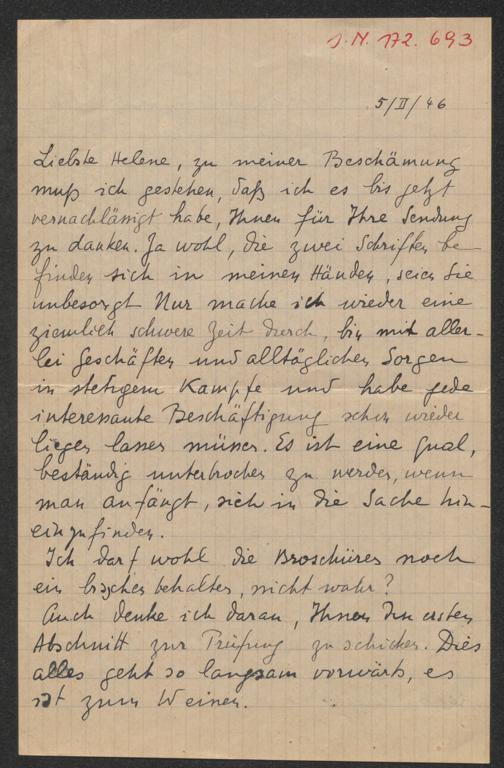 J.N. 172.693
5/II/46
Liebste Helene, zu meiner Beschämung
muß ich gestehen, daß ich es bis jetzt
vernachlässigt habe, Ihnen für Ihre Sendung
zu danken. Ja wohl, die zwei Schriften be-
finden sich in meinen Händen, seien Sie
unbesorgt Nur mache ich wieder eine
ziemlich schwere Zeit durch, bin mit aller-
lei Geschäften und alltäglichen Sorgen
in stetigem Kampfe und habe jede
interessante Beschäftigung schon wieder
liegen lassen müssen. Es ist eine Qual,
beständig unterbrochen zu werden, wenn
man anfängt, sich in die Sache hin-
einzufinden.
Ich darf wohl die Broschüren noch
ein bischen behalten, nicht wahr?
Auch denke ich daran, Ihnen den ersten
Abschnitt zur Prüfung zu schicken. Dies
alles geht so langsam vorwärts, es
ist zum Weinen.